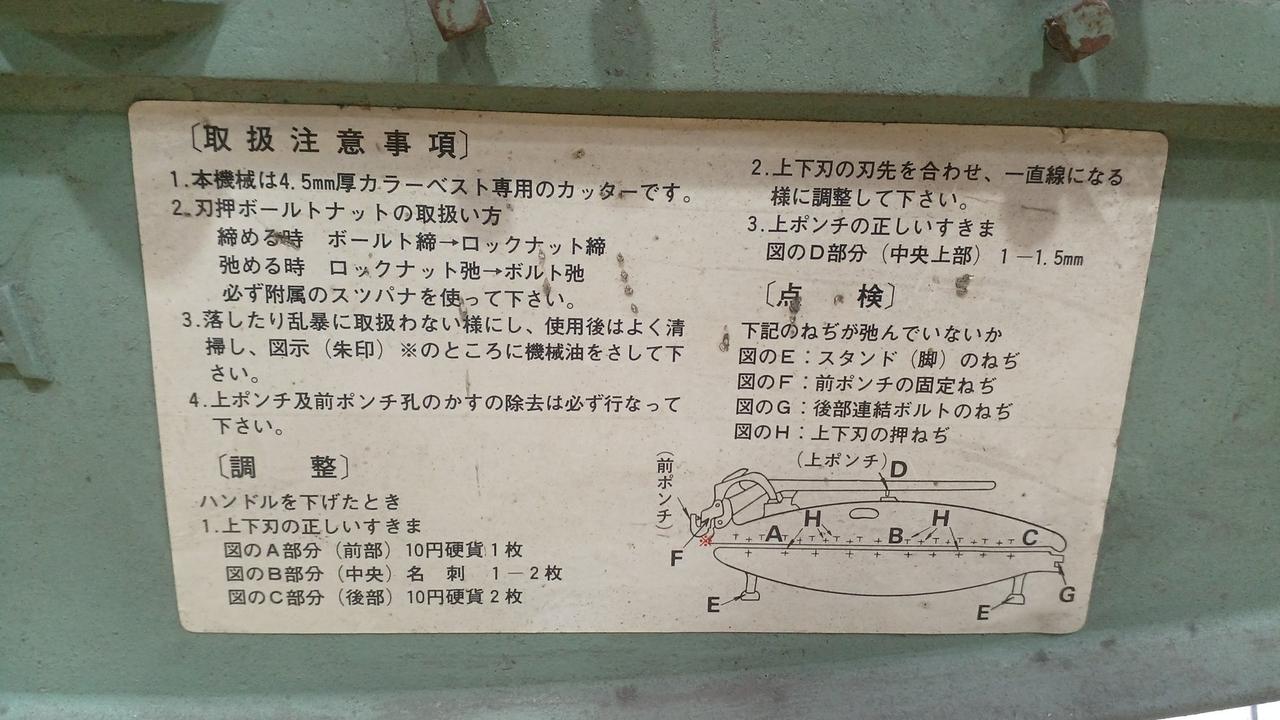 〔取扱注意事項〕
1.本機械は4.5mm厚カラーベスト専用のカッターです。
2.刃押ボールトナットの取扱い方
締める時 ボールト締→ロックナット締
弛める時 ロックナット弛→ボルト弛
必ず附属のスツパナを使って下さい。
3.落したり乱暴に取扱わない様にし、使用後はよく清
掃し、図示（朱印）※のところに機械油をさして下
さい。
4.上ポンチ及前ポンチ孔のかすの除去は必ず行なって
下さい。
〔調 整〕
ハンドルを下げたとき
1.上下刃の正しいすきま
図のA部分（前部）10円硬貨1枚
図のB部分（中央）名 刺 1－2枚
図のC部分（後部）10円硬貨2枚
2.上下刃の刃先を合わせ、一直線になる
様に調整して下さい。
3.上ポンチの正しいすきま
図のD部分（中央上部）1－1.5mm
〔点 検〕
下記のねぢが弛んでいないか
図のE：スタンド（脚）のねぢ
図のF：前ポンチの固定ねぢ
図のG：後部連結ボルトのねぢ
図のH：上下刃の押ねぢ
（上ポンチ）D
（前ポンチ）
H H
A B C
※
F
G
E E